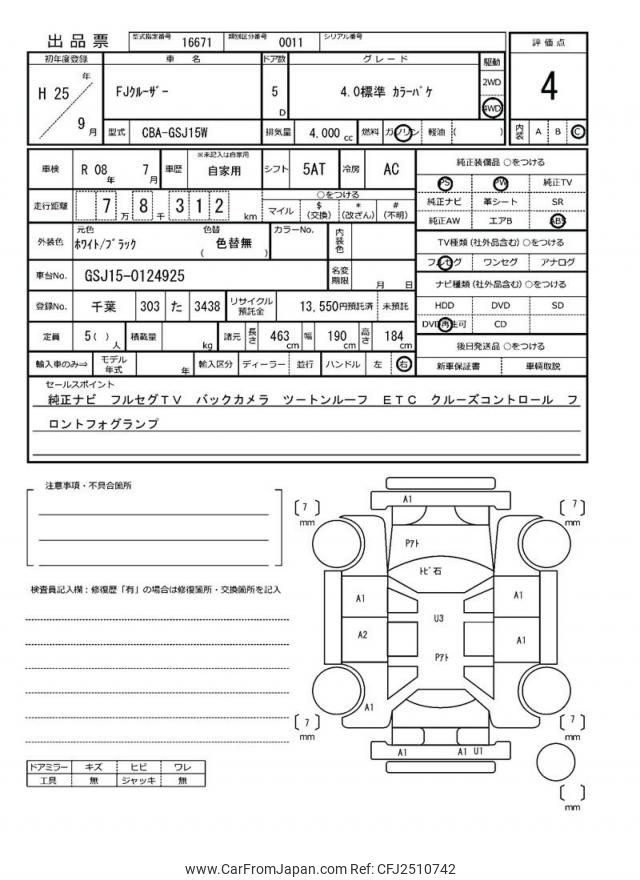 出品票 型式指定番号 16671 類別区分番号 0011 シリアル番号
初年度登録 車 名 ドア数 グレード 駆動 評価点
H 25 年 9 月 FJｸﾙｰｻﾞｰ 5 D 4.0標準 ｶﾗｰﾊﾟｹ 2WD 4WD 4
型式 CBA-GSJ15W 排気量 4,000 cc 燃料 ガソリン 軽油 ( ) 内装 A B C
車検 R 08 年 7 月 車歴 ※未記入は自家用 自家用 シフト 5AT 冷房 AC
走行距離 7 万 8 千 3 1 2 km
○をつける
マイル $ (交換) * (改ざん) # (不明)
外装色 元色 ﾎﾜｲﾄ/ﾌﾞﾗｯｸ 色替 ( 色替無 ) カラーNo. 内装色
車台No. GSJ15-0124925 名変期限 月 日
登録No. 千葉 303 た 3438 リサイクル預託金 13,550円預託済 未預託
定員 5( ) 人 積載量 kg 諸元 長さ 463 cm 幅 190 cm 高さ 184 cm
輸入車のみ⇒ モデル年式 年 輸入区分 ディーラー 並行 ハンドル 左 右
純正装備品 ○をつける
PS PW 純正TV
純正ナビ 革シート SR
純正AW エアB ABS
TV種類(社外品含む)○をつける
フルセグ ワンセグ アナログ
ナビ種類(社外品含む)○をつける
HDD DVD SD
DVD再生可 CD
後日発送品 ○をつける
新車保証書 車輌取説
セールスポイント
純正ナビ フルセグTV バックカメラ ツートンルーフ ETC クルーズコントロール フ
ロントフォグランプ
注意事項・不具合箇所
検査員記入欄：修復歴「有」の場合は修復箇所・交換箇所を記入
ドアミラー キズ ヒビ ワレ
工具 無 ジャッキ 無
A1
[ 7 ] mm
[ 7 ] mm
Pｱﾄ
ﾄﾋﾞ石
A1
A1
U3
A2
A1
Pｱﾄ
A1
[ 7 ] mm
[ 7 ] mm
A1
A1 U1
[ ] mm
www.CarFromJapan.com Ref: CFJ2510742